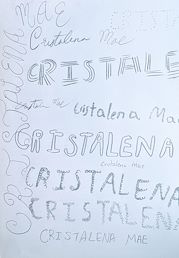 CRISTALENA MAE
CRISTALE
Cristalena Mae
CRISTALE
Cristalena Mae
Cristalena Mae
CRISTALENA
Cristalena Mae
CRISTALENA
CRISTALENA
CRISTALENA MAE